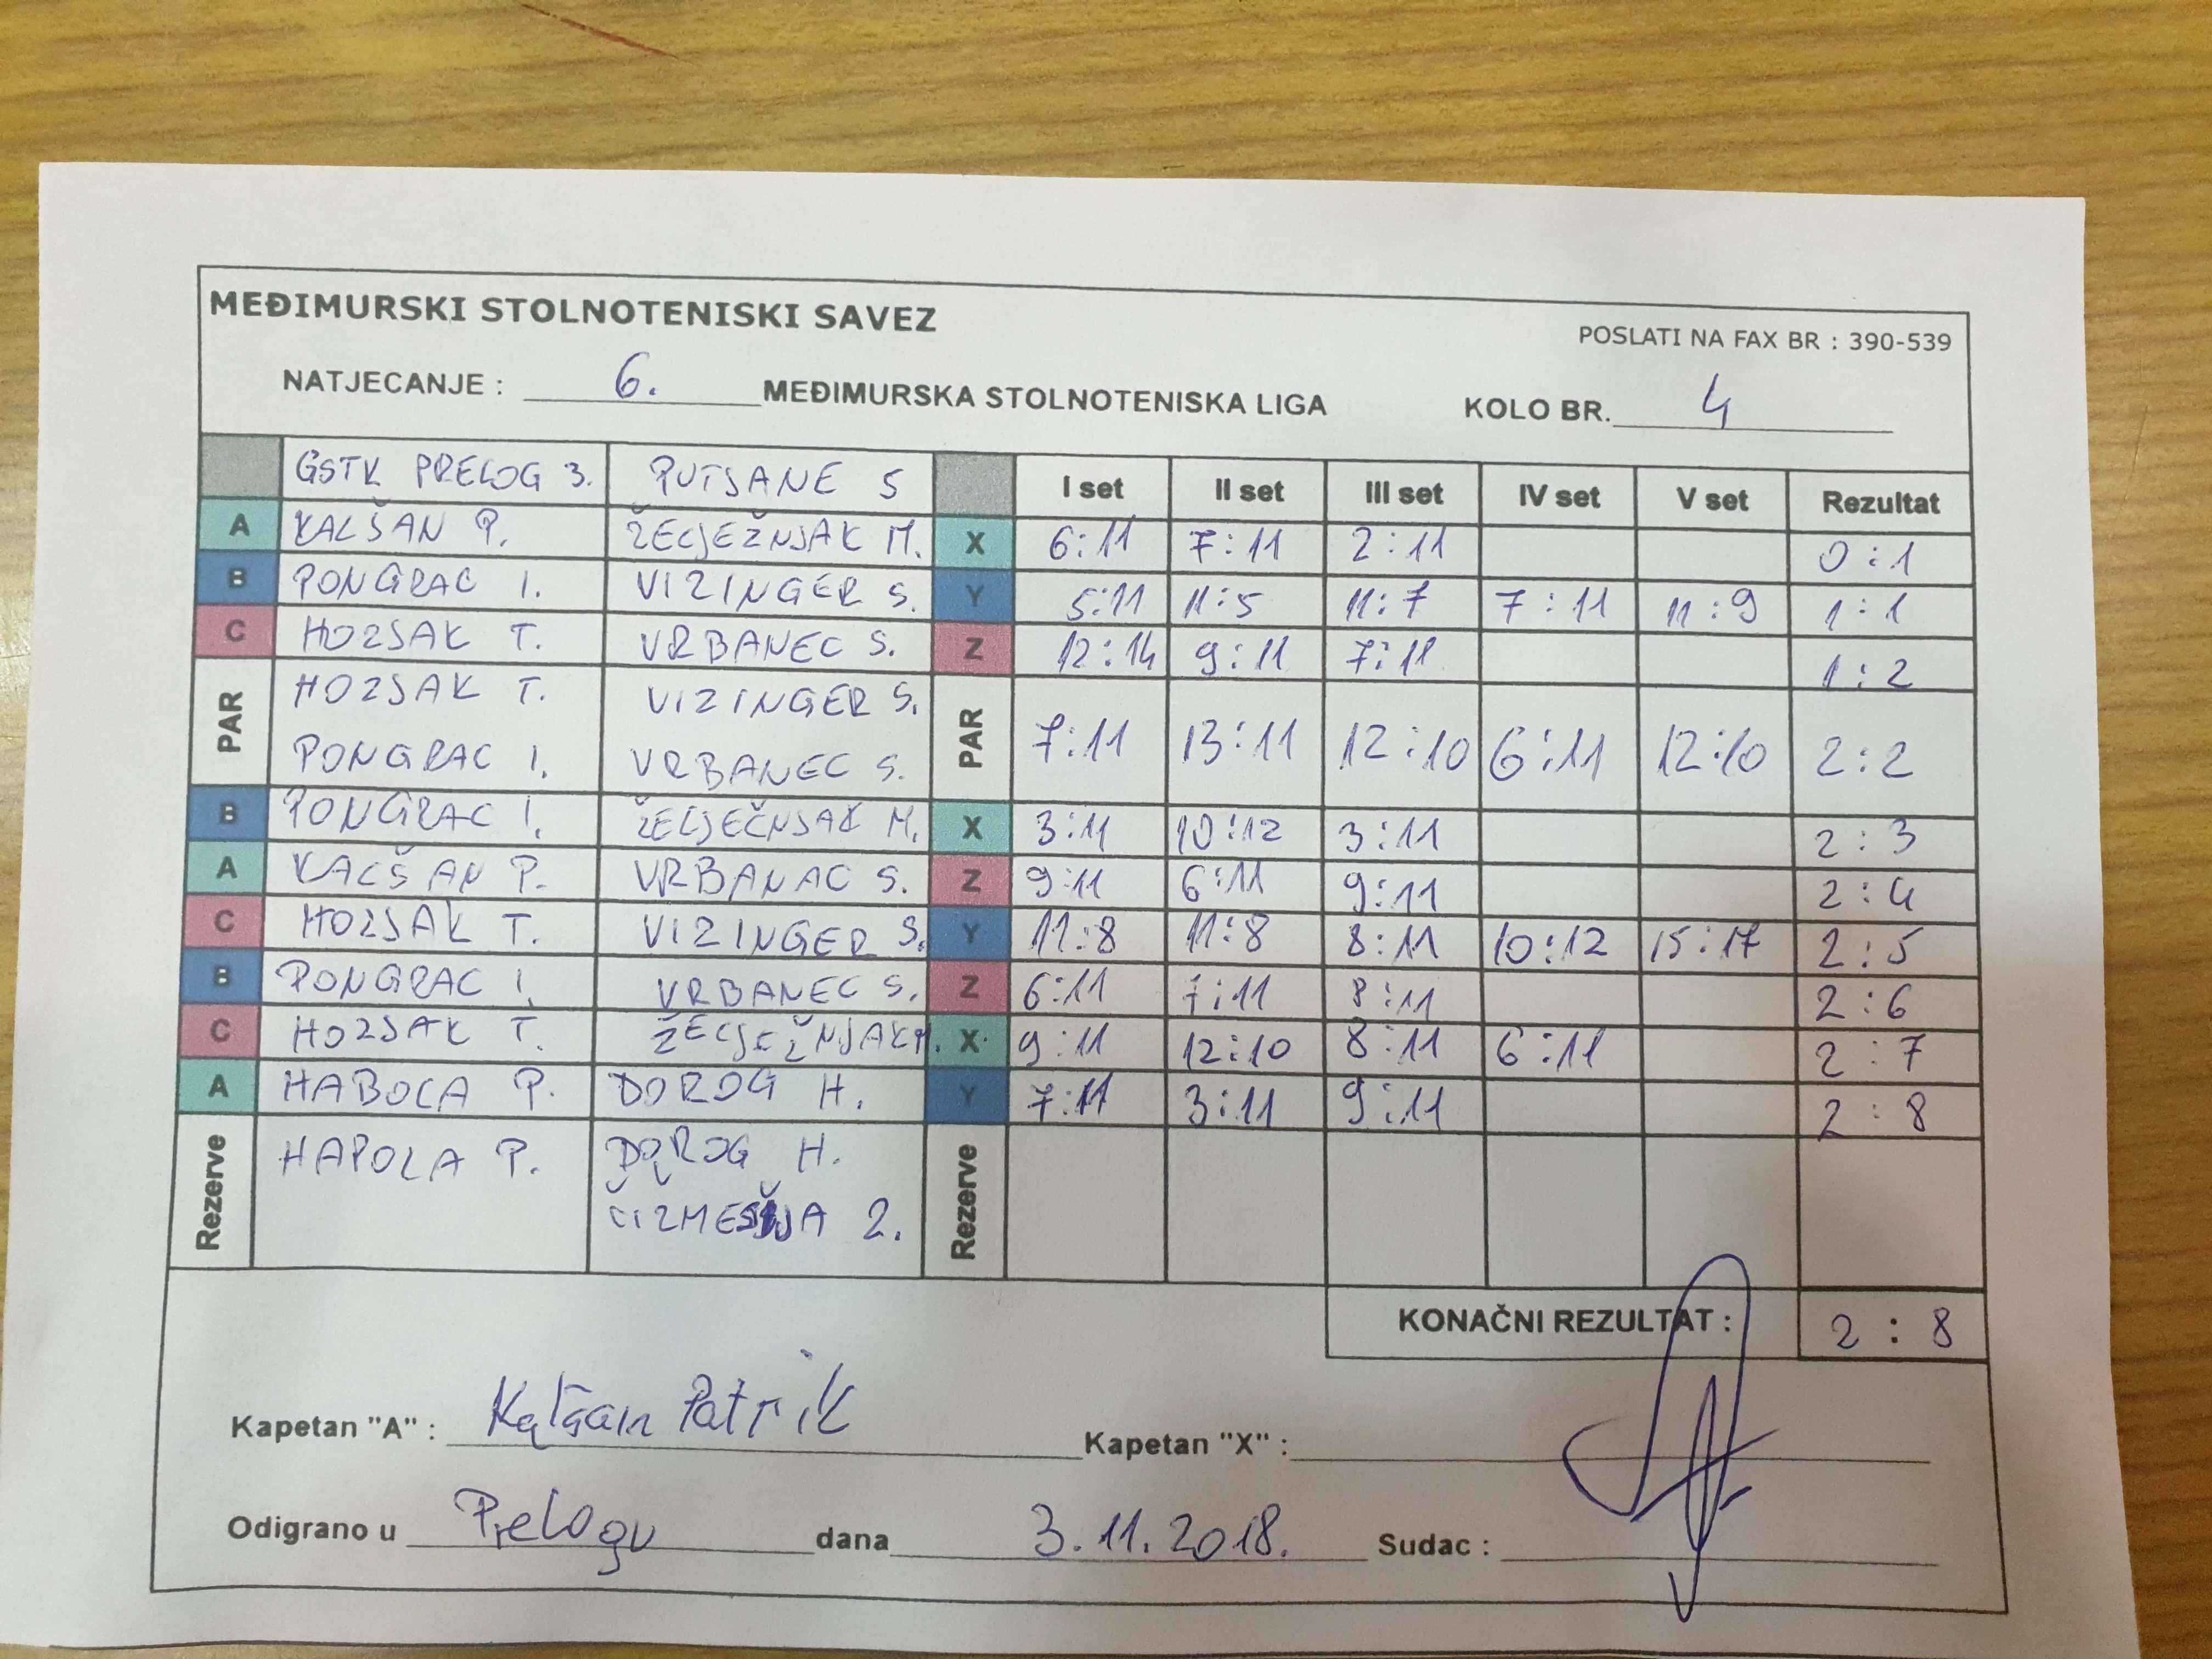 MEĐIMURSKI STOLNOTENISKI SAVEZ
POSLATI NA FAX BR : 390-539
NATJECANJE : 6. MEĐIMURSKA STOLNOTENISKA LIGA KOLO BR. 4
GSTK PRELOG 3. PUTJANE 5 I set II set III set IV set V set Rezultat
A KALŠAN P. ŽELJEŽNJAK M. X 6:11 7:11 2:11 0:1
B PONGRAC I. VIZINGER S. Y 5:11 11:5 11:7 7:11 11:9 1:1
C HOZJAK T. VRBANEC S. Z 12:14 9:11 7:11 1:2
PAR HOZJAK T. VIZINGER S. PAR 7:11 13:11 12:10 6:11 12:10 2:2
PONGRAC I. VRBANEC S.
B PONGRAC I. ŽELJEČNJAK M. X 3:11 10:12 3:11 2:3
A KALŠAN P. VRBANAC S. Z 9:11 6:11 9:11 2:4
C HOZJAK T. VIZINGER S. Y 11:8 11:8 8:11 10:12 15:17 2:5
B PONGRAC I. VRBANEC S. Z 6:11 7:11 8:11 2:6
C HOZJAK T. ŽELJEŽNJAK M. X 9:11 12:10 8:11 6:11 2:7
A HABOLA P. DOROG H. Y 7:11 3:11 9:11 2:8
Rezerve HAPOLA P. DOROG H. Rezerve
ČIZMEŠIJA Z.
KONAČNI REZULTAT : 2:8
Kapetan "A" : Kalšan Patrik Kapetan "X" :
Odigrano u Prelogu dana 3.11.2018. Sudac :